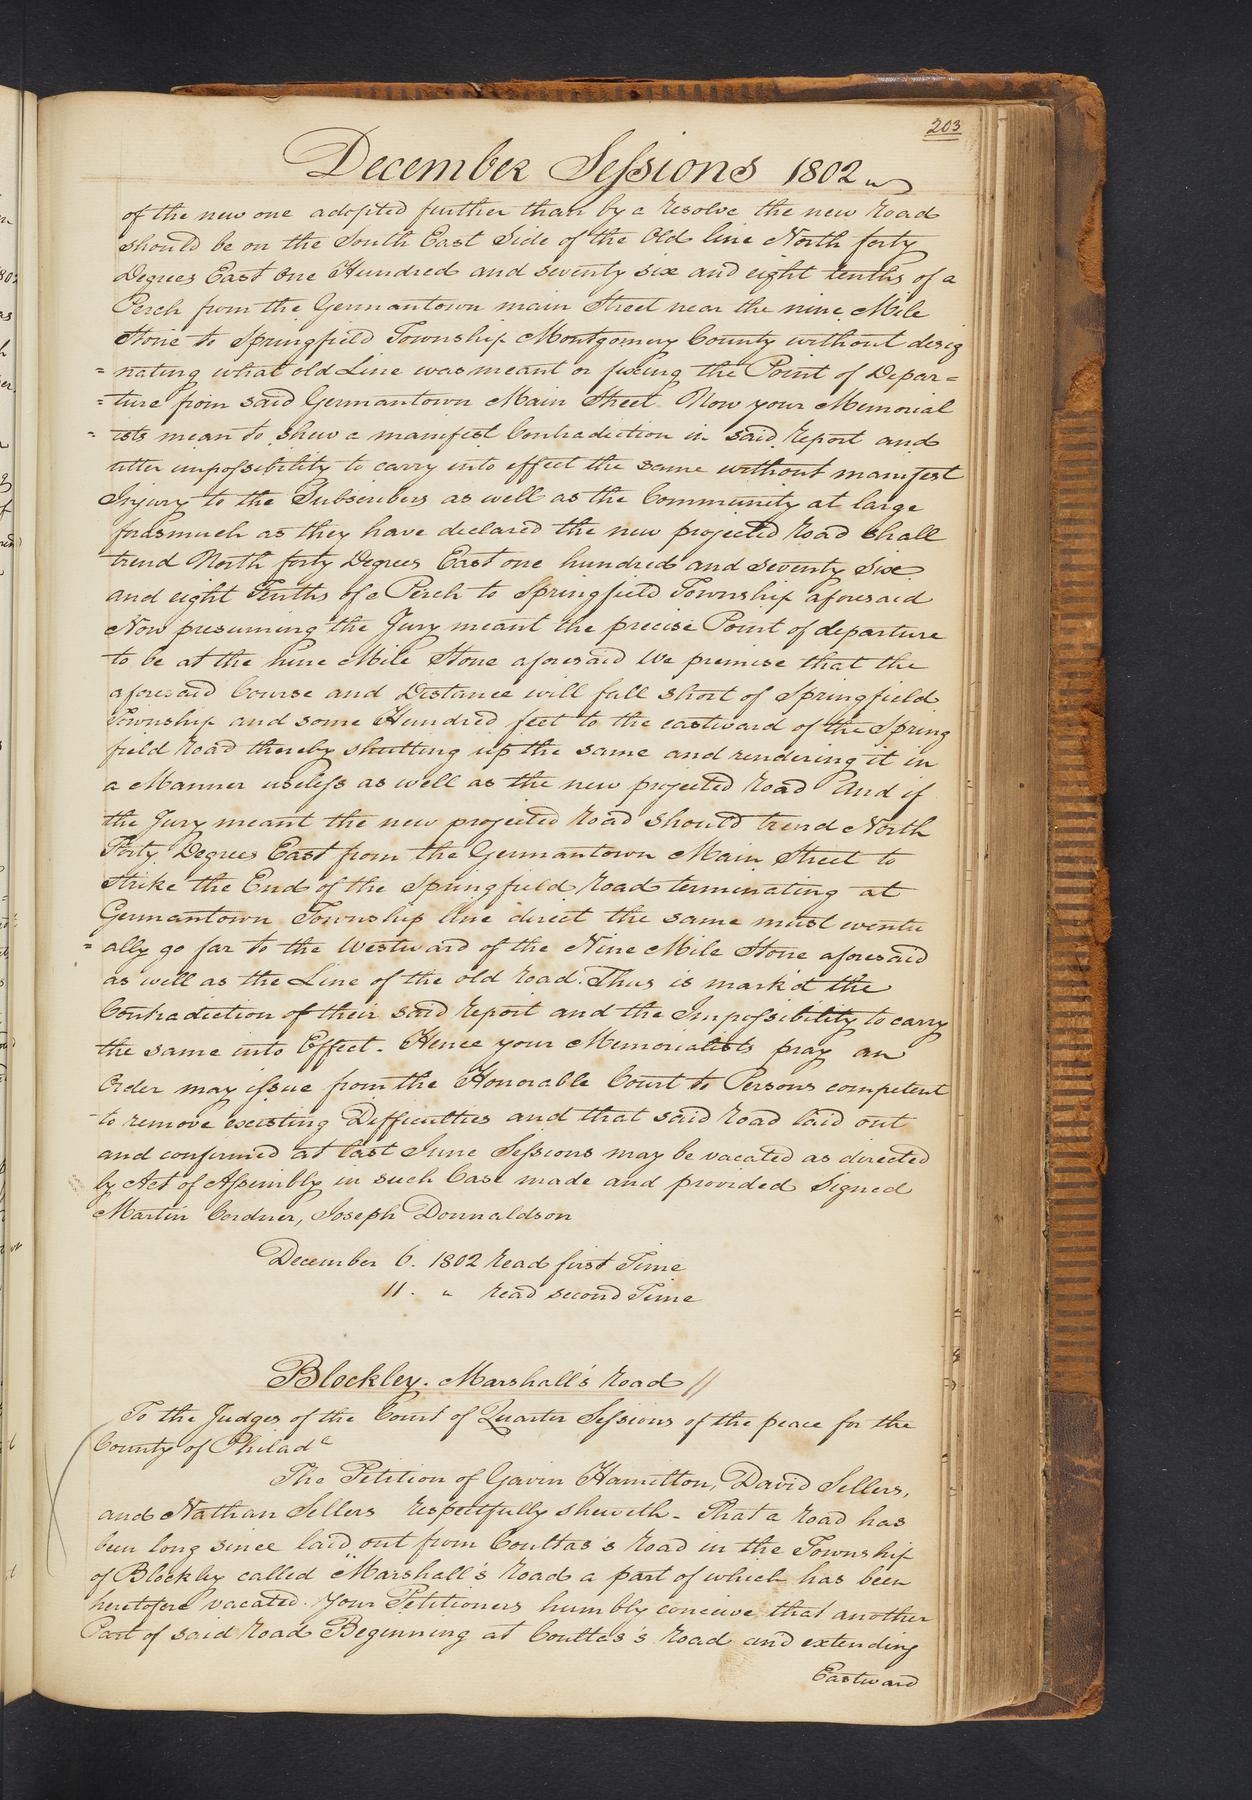 203
December Sessions 1802
of the new one adopted further than by a resolve the new road
should be on the South East Side of the Old line North forty
Degrees East One Hundred and seventy six and eight tenths of a
Perch from the Germantown main Street near the nine Mile
Stone to Springfield Township Montgomery County without desig
= nating what old Line was meant or fixing the Point of Depar=
= ture from said Germantown Main Street. Now your Memorial
= ists mean to shew a manifest Contradiction in said report and
utter impossibility to carry into effect the same without manifest
Injury to the Subscribers as well as the Community at large
forasmuch as they have declared the new projected road shall
trend North forty Degrees East one hundred and seventy Six
and eight Tenths of a Perch to Springfield Township aforesaid
Now presuming the Jury meant the precise Point of departure
to be at the nine Mile Stone aforesaid We premise that the
aforesaid Course and Distance will fall short of Springfield
Township and some Hundred feet to the eastward of the Spring
field road thereby shutting up the same and rendering it in
a Manner useless as well as the new projected road And if
the Jury meant the new projected road should trend North
Forty Degrees East from the Germantown Main Street to
strike the End of the Springfield road terminating at
Germantown Township line direct the same must eventu
= ally go far to the Westward of the Nine Mile Stone aforesaid
as well as the Line of the old road. Thus is mark'd the
Contradiction of their said report and the Impossibility to carry
the same into Effect. Hence your Memorialists pray an
Order may issue from the Honorable Court to Persons competent
to remove existing Difficulties and that said road laid out
and confirmed at last June Sessions may be vacated as directed
by Act of Assembly in such Case made and provided Signed
Martin Cordner, Joseph Donnaldson
December 6. 1802 read first Time
11. " read second Time
Blockley. Marshall's road //
To the Judges of the Court of Quarter Sessions of the peace for the
County of Philada
The Petition of Gavin Hamilton, David Sellers,
and Nathan Sellers respectfully sheweth - That a road has
been long since laid out from Coultas's road in the Township
of Blockley called "Marshall's road a part of which has been
heretofore vacated. Your Petitioners humbly conceive that another
Part of said road Beginning at Coultas's road and extending
Eastward